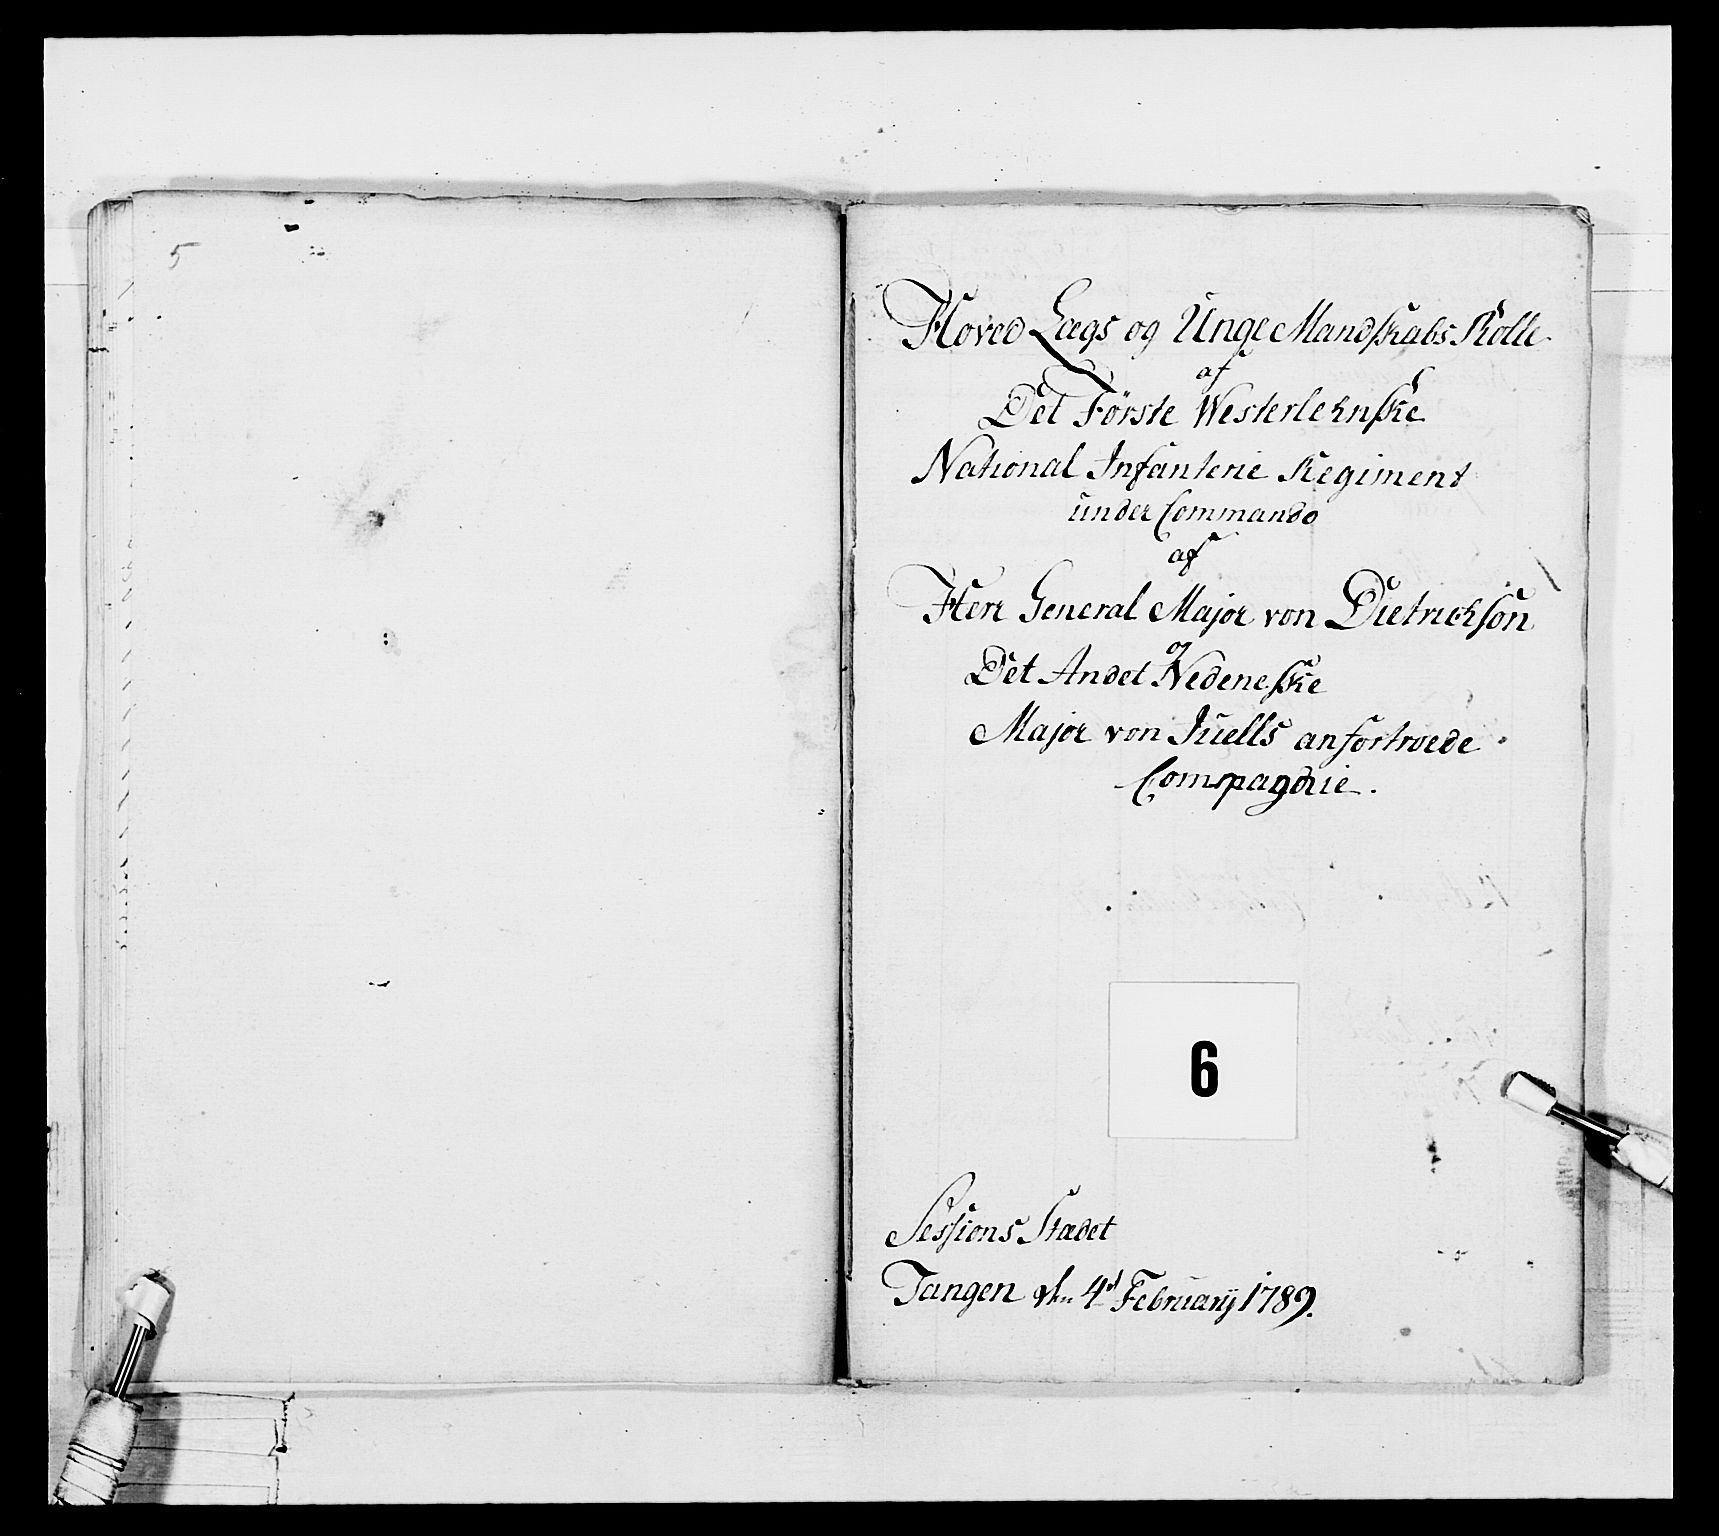 5
Hoved Lægs og Unge Mandskabs Rolle
af
Det Förste Westerlehnske
National Infanterie Regiment
under Commando
af
Herr General Major von Dietrichson
og
Det Andet Nedeneske
Major von Juells anfortroede
Compagnie.
6
Sessions Stædet
Tangen den 4d Februarij 1789.